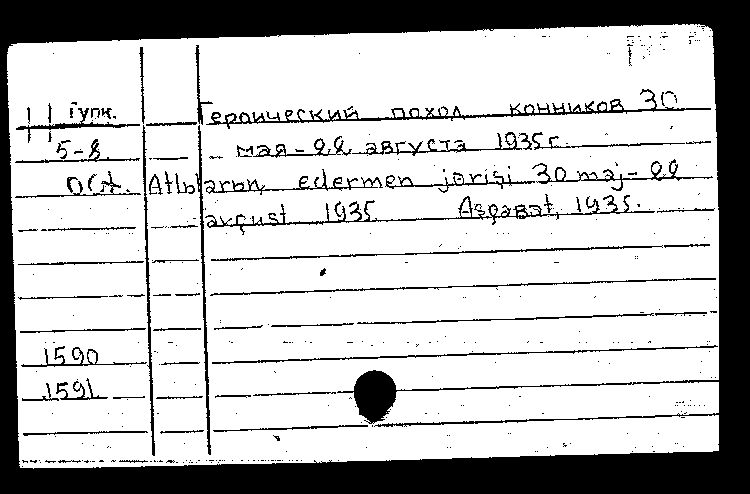 Гупк. Героический поход конников 30
5-8. мая - 22 августа 1935 г.
Atlьlarьn, edermen jɵrişi 30 maj - 22
avgust 1935 Aşgabat, 1935.
1590
1591